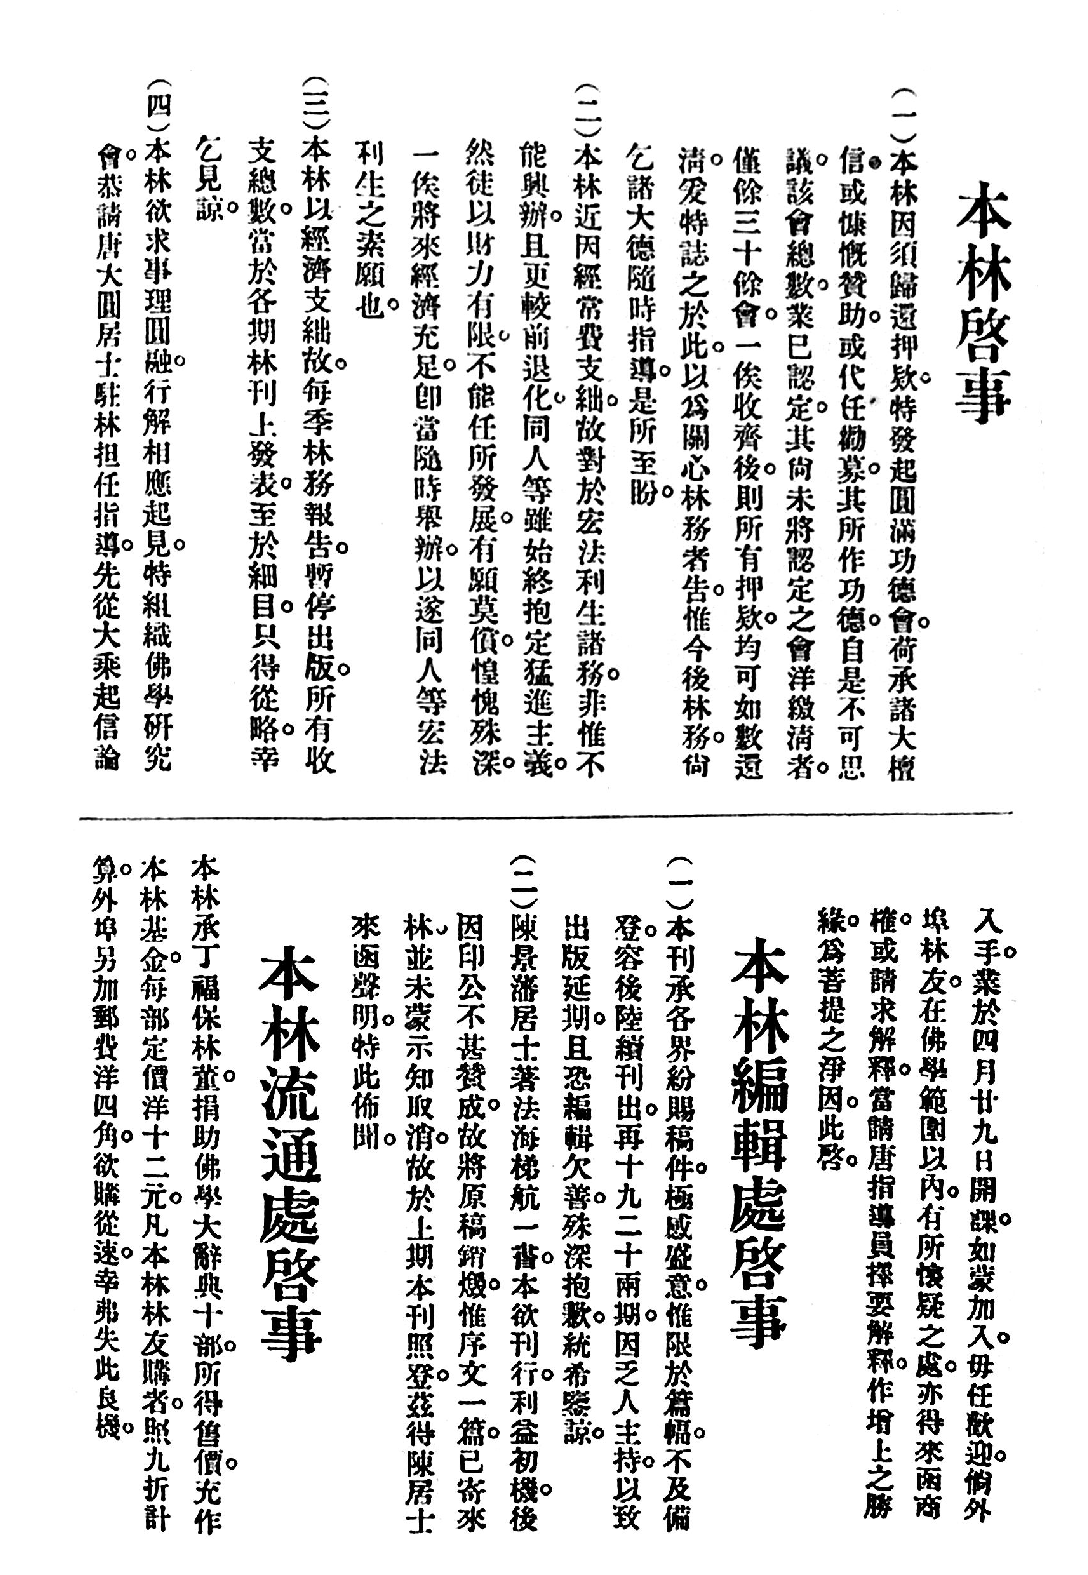 本林啓事
(一)本林因須歸還押欵。特發起圓滿功德會。荷承諸大檀
信。或慷慨贊助。或代任勸募。其所作功德。自是不可思
議。該會總數。業已認定。其尙未將認定之會洋繳淸者。
僅餘三十餘會。一俟收齊後。則所有押欵。均可如數還
淸。爰特誌之於此。以爲關心林務者告。惟今後林務。尙
乞諸大德隨時指導。是所至盼。
(二)本林近因經常費支絀。故對於宏法利生諸務。非惟不
能興辦。且更較前退化。同人等雖始終抱定猛進主義。
然徒以財力有限。不能任所發展。有願莫償。惶愧殊深。
一俟將來經濟充足。卽當隨時舉辦。以遂同人等宏法
利生之素願也。
(三)本林以經濟支絀故。每季林務報告。暫停出版。所有收
支總數。當於各期林刊上發表。至於細目。只得從略。幸
乞見諒。
(四)本林欲求事理圓融。行解相應起見。特組織佛學硏究
會。恭請唐大圓居士駐林担任指導。先從大乘起信論
入手。業於四月廿九日開課。如蒙加入。毋任歡迎。倘外
埠林友。在佛學範圍以內。有所懷疑之處。亦得來函商
榷。或請求解釋。當請唐指導員擇要解釋。作增上之勝
緣。爲菩提之淨因。此啓。
本林編輯處啓事
(一)本刊承各界紛賜稿件。極感盛意。惟限於篇幅。不及備
登。容後陸續刊出。再十九二十兩期。因乏人主持。以致
出版延期。且恐編輯欠善。殊深抱歉。統希鑒諒。
(二)陳景藩居士著法海梯航一書。本欲刊行。利益初機。後
因印公不甚贊成。故將原稿銷燬。惟序文一篇。已寄來
林。並未蒙示知取消。故於上期本刊照登。茲得陳居士
來函聲明。特此佈聞。
本林流通處啓事
本林承丁福保林董。捐助佛學大辭典十部。所得售價。充作
本林基金。每部定價洋十二元。凡本林林友購者。照九折計
算。外埠另加郵費洋四角。欲購從速。幸弗失此良機。